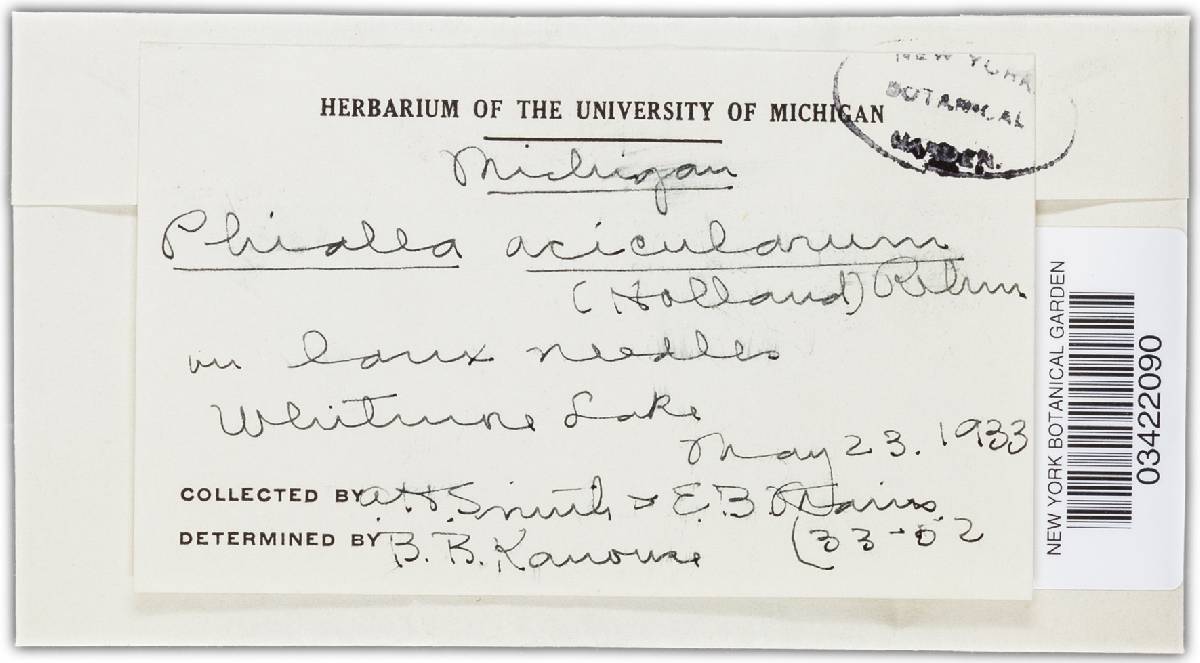 NEW YORK
BOTANICAL
GARDEN.
HERBARIUM OF THE UNIVERSITY OF MICHIGAN
Michigan
Phialea acicularum
(Holland) Rehm
on Larix needles
Whitmore Lake
May 23. 1933
COLLECTED BY A.H. Smith & E.B. Mains
DETERMINED BY B. B. Kanouse
(33-52
NEW YORK BOTANICAL GARDEN
03422090